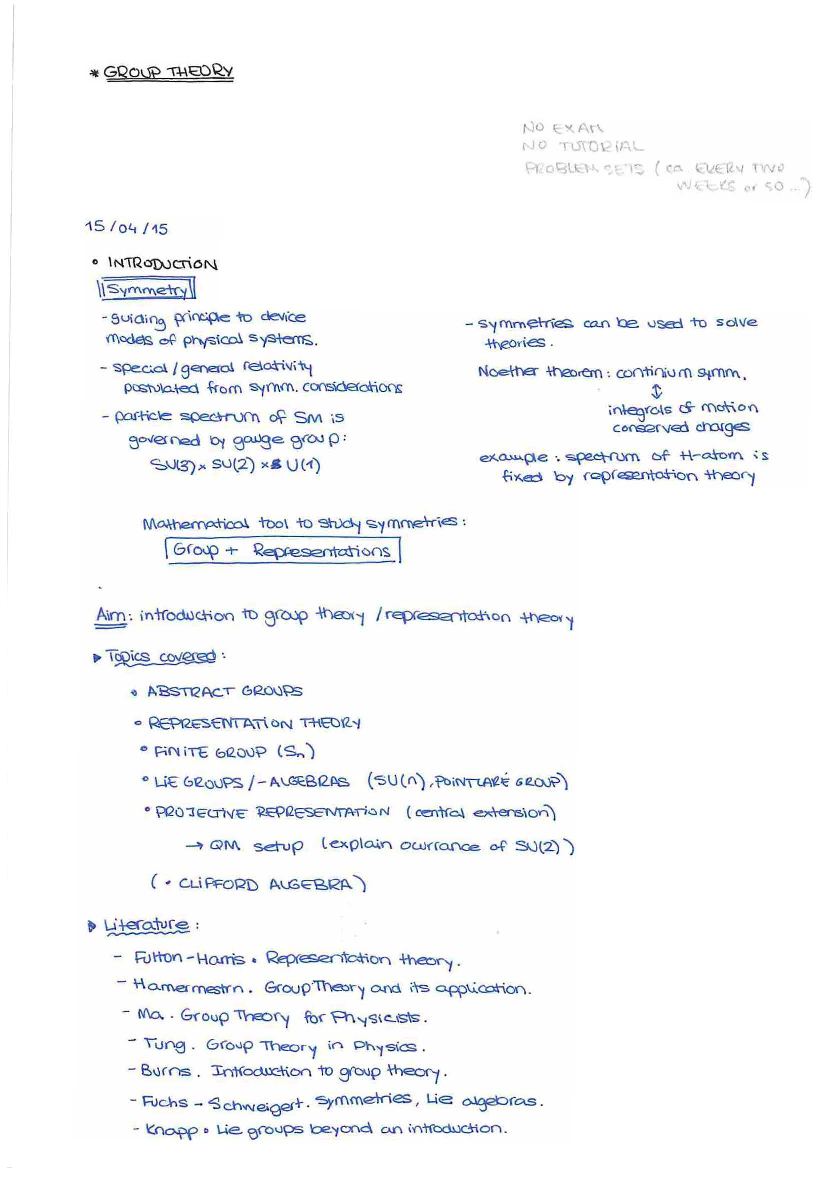 * GROUP THEORY
NO EXAM
NO TUTORIAL
PROBLEM SETS (ca EVERY TWO
WEEKS or SO ...)
15/04/15
° INTRODUCTION
Symmetry
- guiding principle to device
models of physical systems.
- special/general relativity
postulated from symm. considerations
- particle spectrum of SM is
governed by gauge group:
SU(3) x SU(2) x U(1)
- symmetries can be used to solve
theories.
Noether theorem: continium symm.
↕
integrals of motion
conserved charges
example: spectrum of H-atom is
fixed by representation theory
Mathematical tool to study symmetries:
Group + Representations
Aim: introduction to group theory /representation theory
▶ Topics covered:
• ABSTRACT GROUPS
• REPRESENTATION THEORY
• FINITE GROUP (Sn)
• LIE GROUPS/-ALGEBRAS (SU(n), POINTCARÉ GROUP)
• PROJECTIVE REPRESENTATION (central extension)
→ QM setup (explain ocurrance of SU(2))
(• CLIFFORD ALGEBRA)
▶ Literature:
- Fulton-Harris. Representation theory.
- Hamermestrn. Group Theory and its application.
- Ma. Group Theory for Physicists.
- Tung. Group Theory in Physics.
- Burns. Introduction to group theory.
- Fuchs - Schweigert. Symmetries, Lie algebras.
- Knapp. Lie groups beyond an introduction.